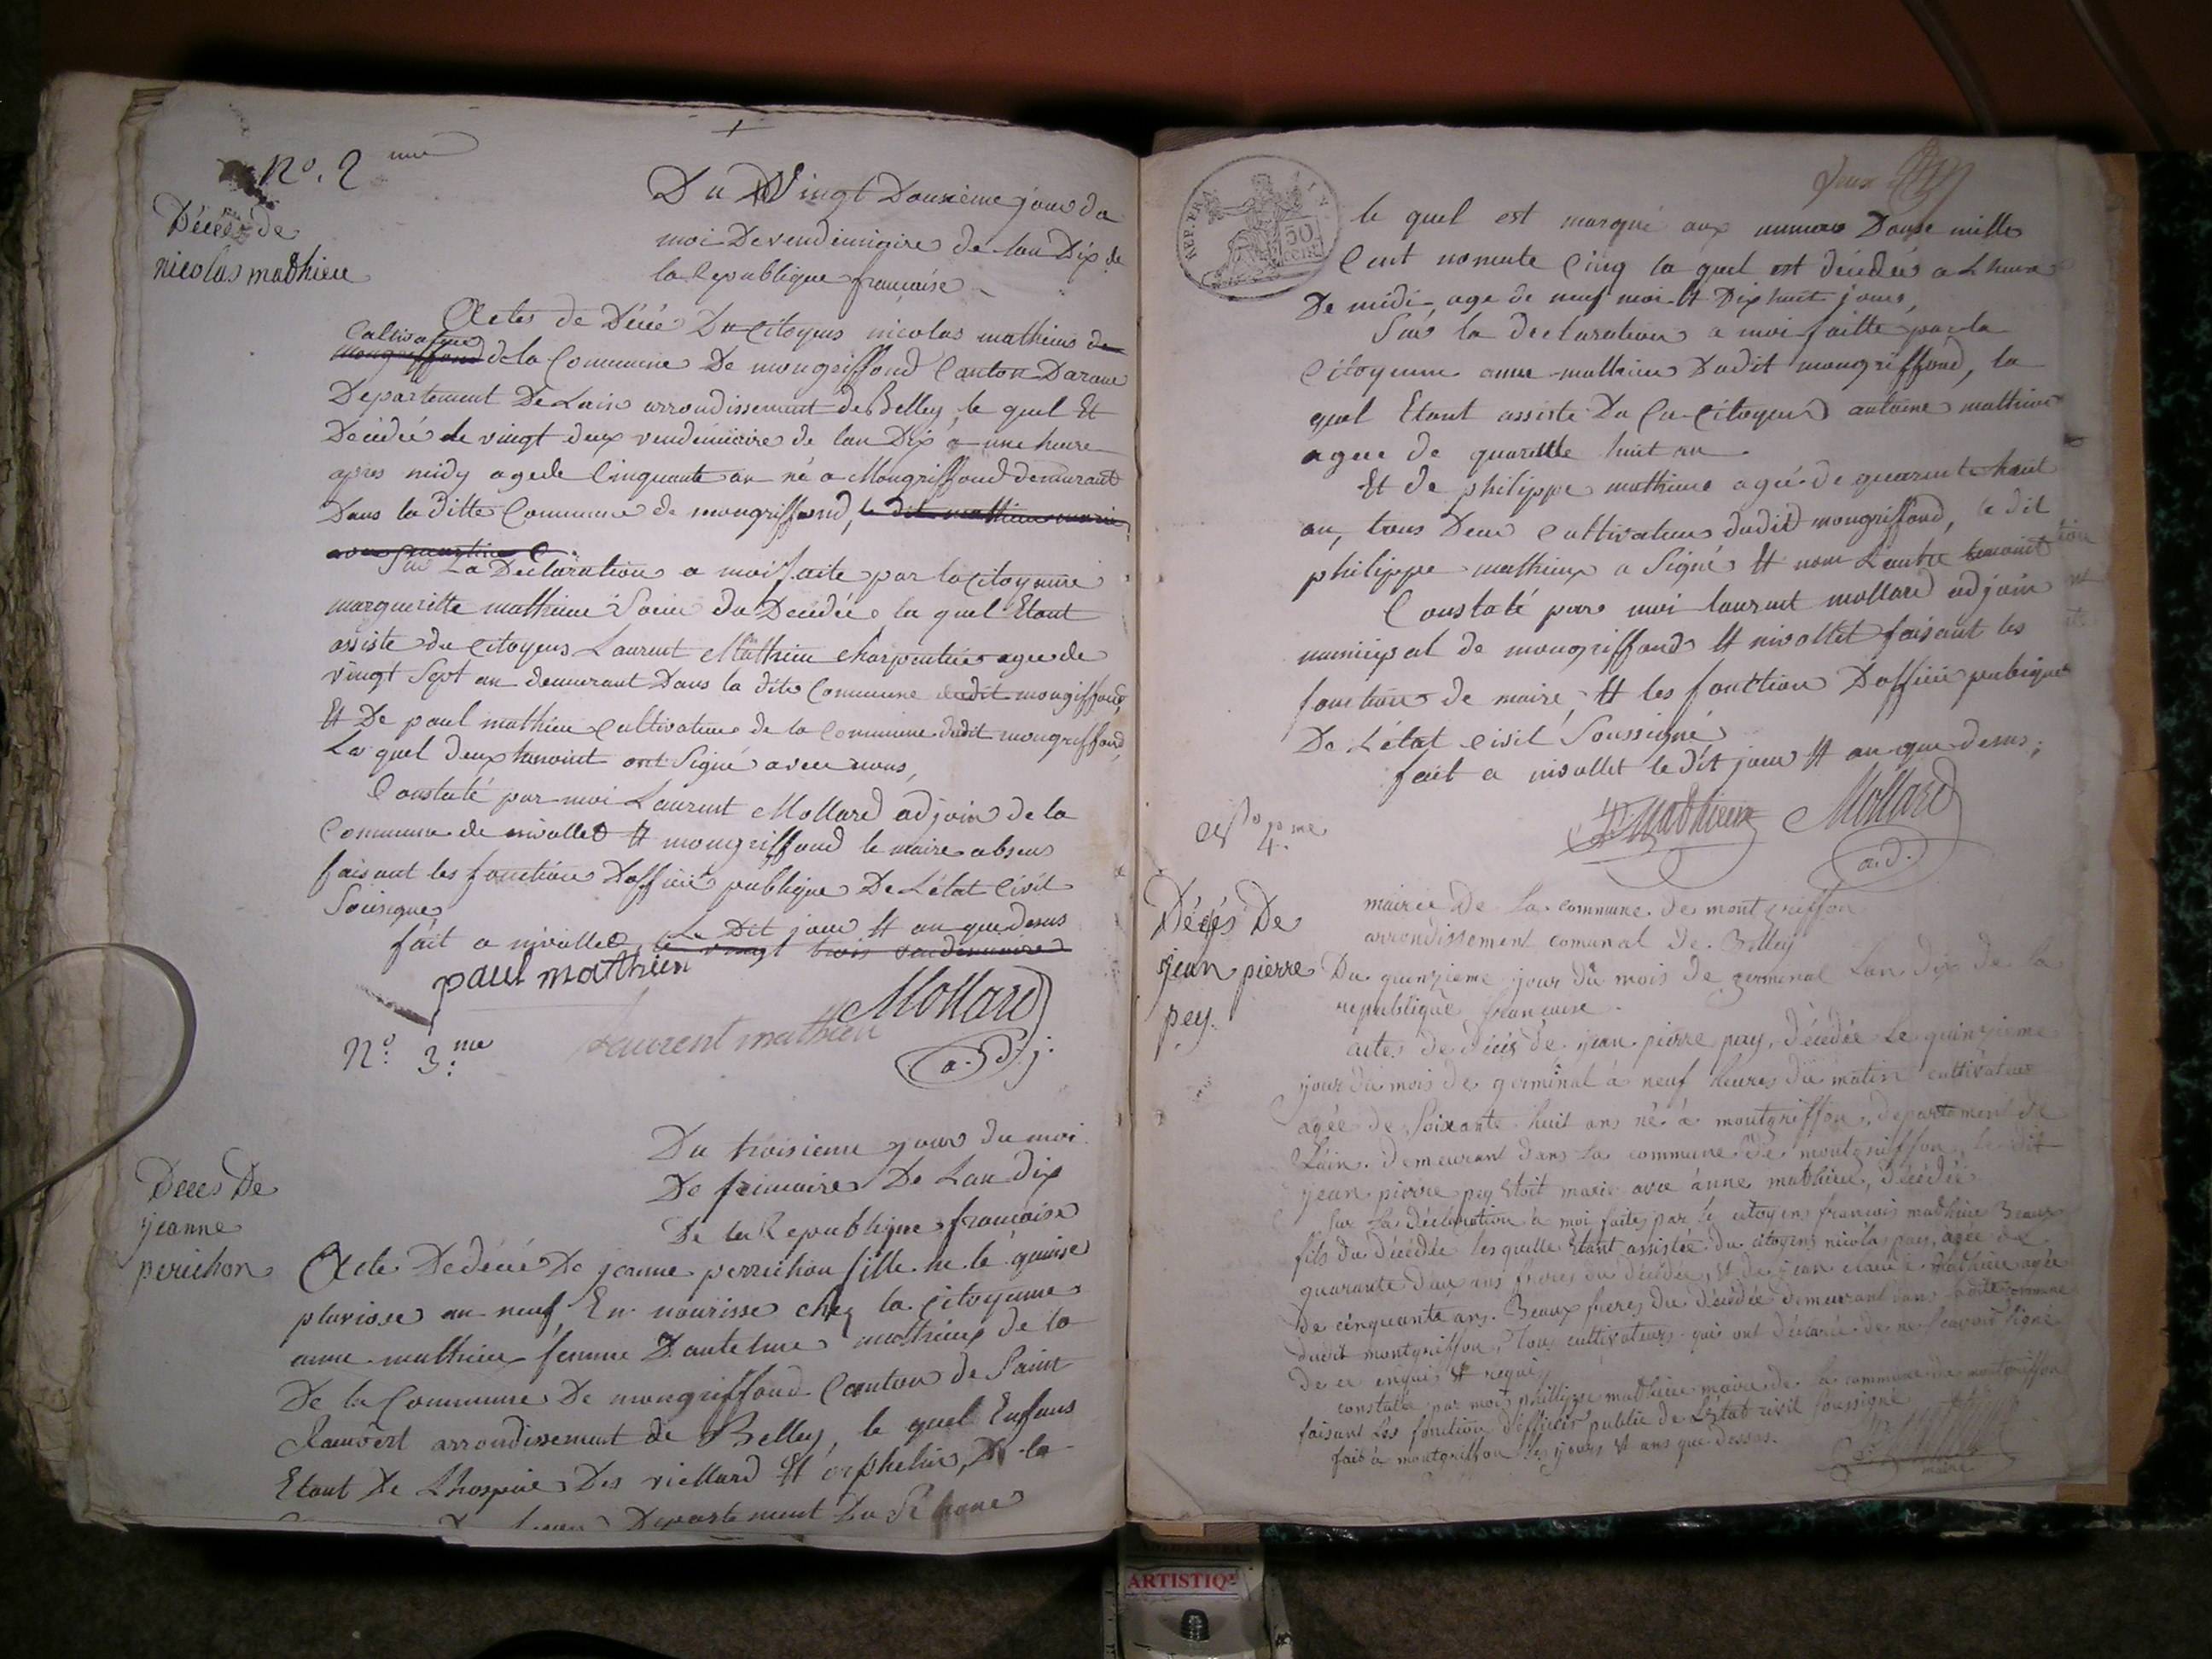 N.o 2 me
Décés de
nicolas mathieu
Du Vingt Deuxième jour du
moi De vendemiaire de lan Dix de
la Republique francaise
Actes de Décée Du Citoyens nicolas mathieus de
Cultivateur
mongriffond de la Commune De mongriffond Canton Darane
Departement De Lain arrondissement de Belley, le quel Et
Décédée le vingt deux vendemiaire de lan Dix a une heure
apres midy agede Cinquante an né a Mongriffond demeurant
Dans la Ditte Commune de mongriffond, le dit mathieu marie
avec
Sur La Declaration a moi faite par la Citoyenne
margueritte mathieu Soeur du Decédée la quel Etant
assiste du Citoyens Laurent Mathieu charpentier agee de
vingt Sept an demeurant Dans la dite Commune dudit mongiffond,
Et De paul mathieu Cultivateur de la Commune dudit mongriffond,
Les quel deux temoint ont Signé avec nous,
Constaté par moi Laurent Mollard adjoin de la
Commune de nivollet Et mongriffond le maire absens
faisant les fonction Dofficié publique De Létat Civil
Sousigne,
fait a nivollet, Le Dit jour Et an que desus
le vingt trois vendemiaire
paul mathieu
Mollard
Laurent mathieu
a.Dj.
N.o 3.me
Deces De
jeanne
perichon
Du troisieme jour du moi
De frimaire De Lan dix
De la Republique francaise
Acte De décé De jeanne perrichon fille ne le quinse
pluviose an neuf En nourisse chez la Citoyenne
anne mathieu femme Dantelme mathieux de la
De la Commune De mongriffond Canton de Saint
Rambert arrondissement de Belley, le quel Enfans
Etant De Lhospice Des viellard Et orphelin, De la
Departement Du Rhone
Deux
REP. FRA.
50
CENT.
le quel est marqué aux numero Douse mille
Cent nonente Cinq la quel est décédée a Lheure
De midi, age de neuf moi Et Dix huit jours,
Sur la declaration a moi faitte par la
Citoyenne anne mathieu Dudit mongriffond, la
quel Etant assiste Du Citoyen antoine mathieu
agee de quarente huit an
Et de philippe mathieu agée de quarente huit
an, tous Deux Cultivateur dudit mongriffond, le dit
philippe mathieux a Signé Et non Lautre temoint
Constaté par moi laurent mollard adjoin
municipal de mongriffond Et nivollet faisant les
fonction de maire, Et les fonction Dofficié pubique
De Létat Civil Soussigné
fait a nivollet le dit jour Et an que desus;
P. Mathieu Mollard
a.d.
N.o 4.me
Décés De
jean pierre
pey.
mairie De La commune de montgriffon
arrondissement comunal de Belley
Du quinzieme jour du mois de germinal Lan dix de la
republique francaise.
actes de décés de jean pierre pey, décédée Le quinzieme
jour du mois de germinal à neuf heures du matin cultivateur
agée de Soixante huit ans né à montgriffon, departement de
Lain. demeurant dans la commune de montgriffon, le dit
jean pierre pey Etoit marie avec anne mathieu, décédée
Sur La déclaration à moi faites par le citoyens francois mathieu Beaux
fils du décédée lesquelle étant assistée du citoyens nicolas pey, agée de
quarante deux ans freres du décédée, Et de jean claude mathieu agée
De cinquante ans. Beaux freres du décédée demeurant dans ladite commune
dudit montgriffon, Tous cultivateurs qui ont déclarée de ne scavoir signé
De ce enquis Et requis
constaté par moi phillippe mathieu maire de La commune de montgriffon
faisant Les fonction Dofficier public de Létat civil Soussigné
fait à montgriffon les jours Et ans que dessus.
maire
ARTISTIQ